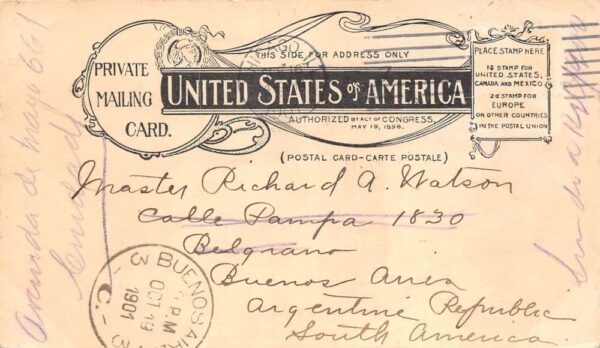 THIS SIDE FOR ADDRESS ONLY
PRIVATE
MAILING
CARD.
UNITED STATES OF AMERICA
AUTHORIZED BY ACT OF CONGRESS,
MAY 19, 1898.
(POSTAL CARD-CARTE POSTALE)
PLACE STAMP HERE
1¢ STAMP FOR
UNITED STATES,
CANADA AND MEXICO
2¢ STAMP FOR
EUROPE
OR OTHER COUNTRIES
IN THE POSTAL UNION
Master Richard A. Watson
Calle Pampa 1830
Belgrano
Buenos Aires
Argentine Republic
South America.
Avenida de Mayo 661
Ciudad
BUENOS AIR
3
P.M
OCT 19
1901
C.
3